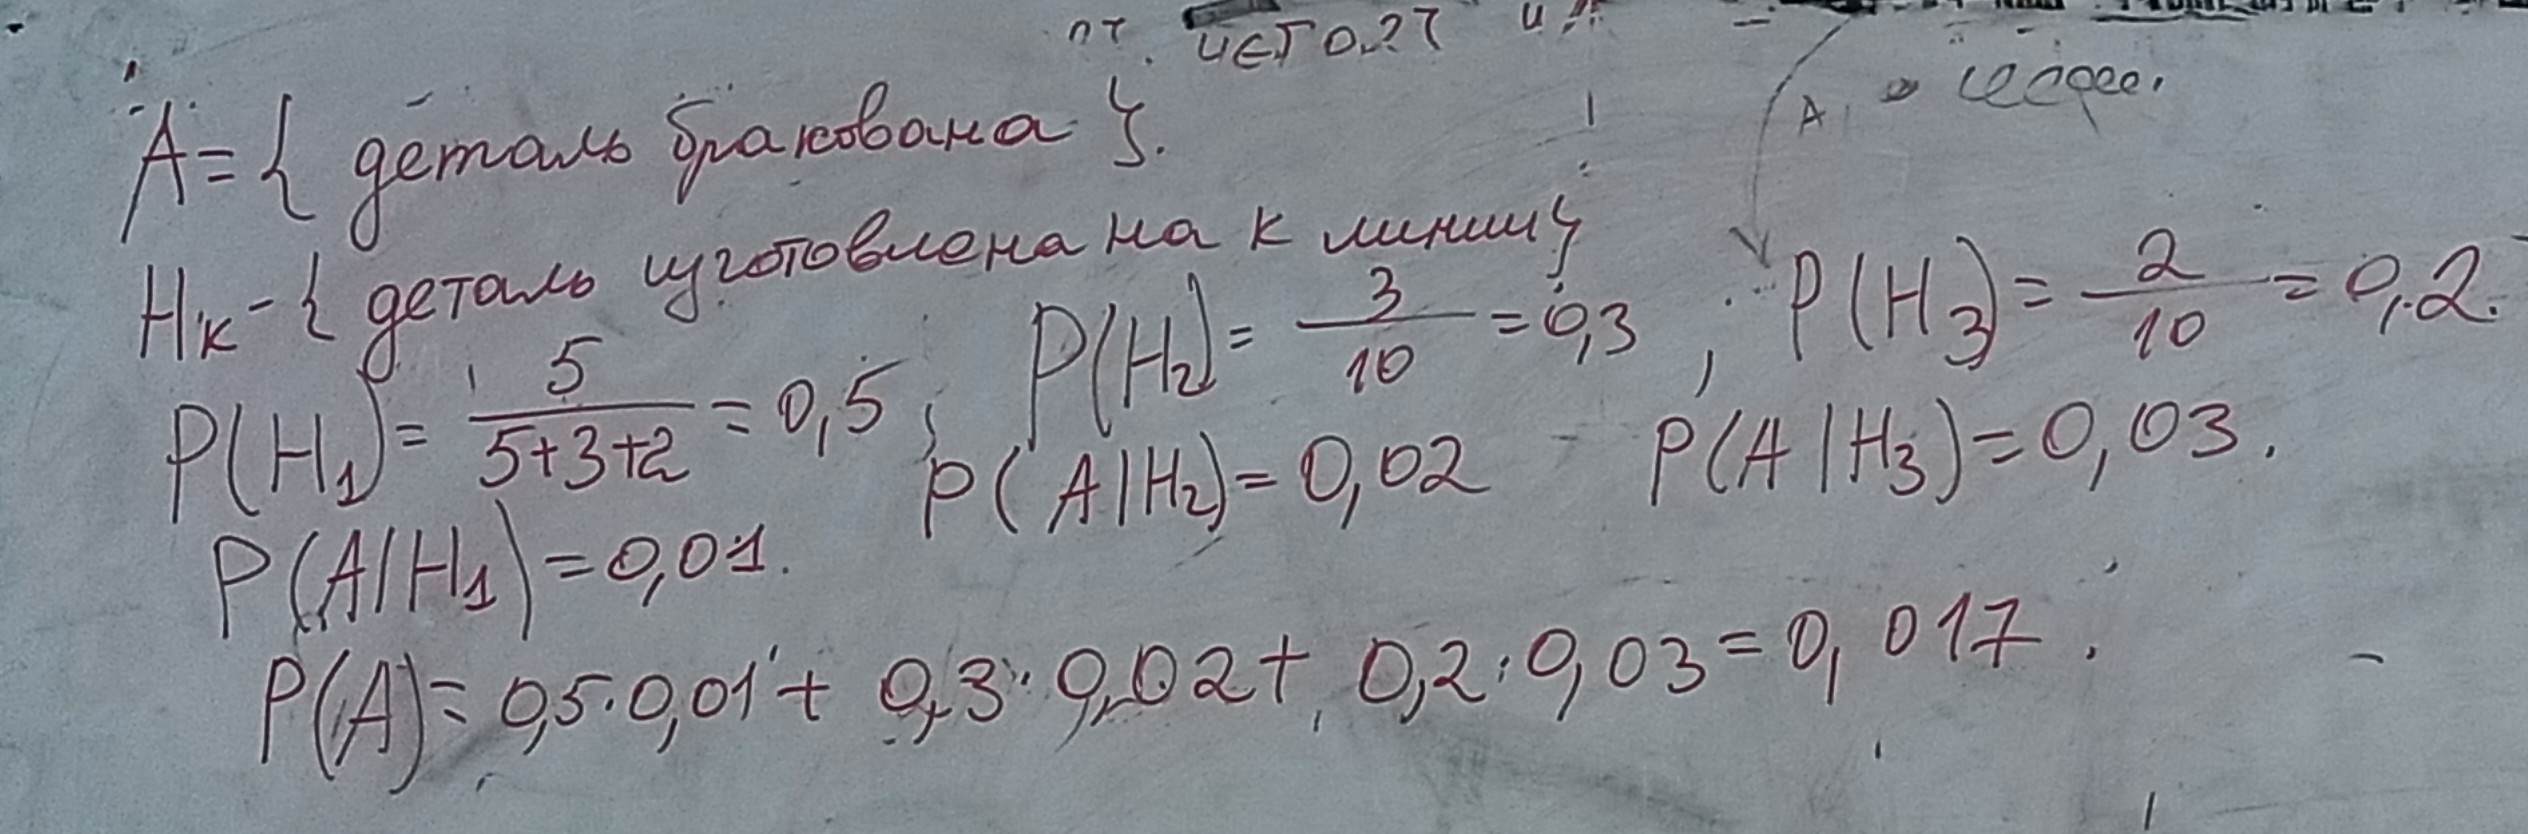 A = { деталь бракована }.
Hк - { деталь изготовлена на к линии}
P(H₁) = 5/(5+3+2) = 0,5 ; P(H₂) = 3/10 = 0,3 , P(H₃) = 2/10 = 0,2.
P(A|H₁) = 0,01. P(A|H₂) = 0,02 P(A|H₃) = 0,03.
P(A) = 0,5·0,01 + 0,3·0,02 + 0,2·0,03 = 0,017.